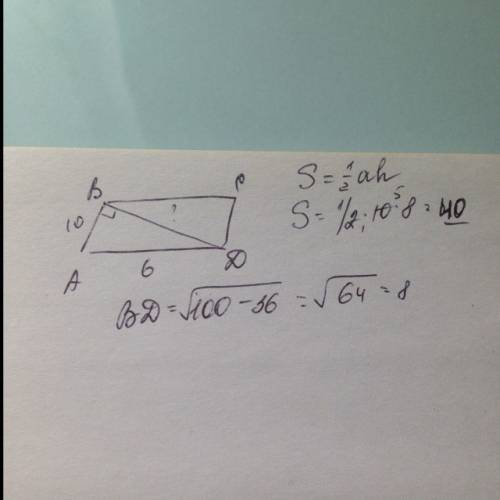 B C
10 ?
A 6 D
S = 1/2 ah
S = 1/2 · 10 5 · 8 = 40
BD = √100 - 36 = √64 = 8